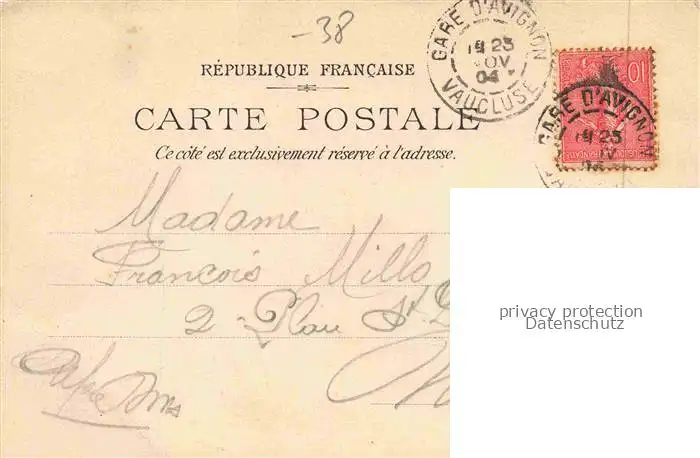 -38
GARE D'AVIGNON
23
NOV
04
VAUCLUSE
RÉPUBLIQUE FRANÇAISE
CARTE POSTALE
Ce côté est exclusivement réservé à l'adresse.
10
GARE D'AVIGNON
23
Madame
François Millo
2 - Plan St
privacy protection
Datenschutz